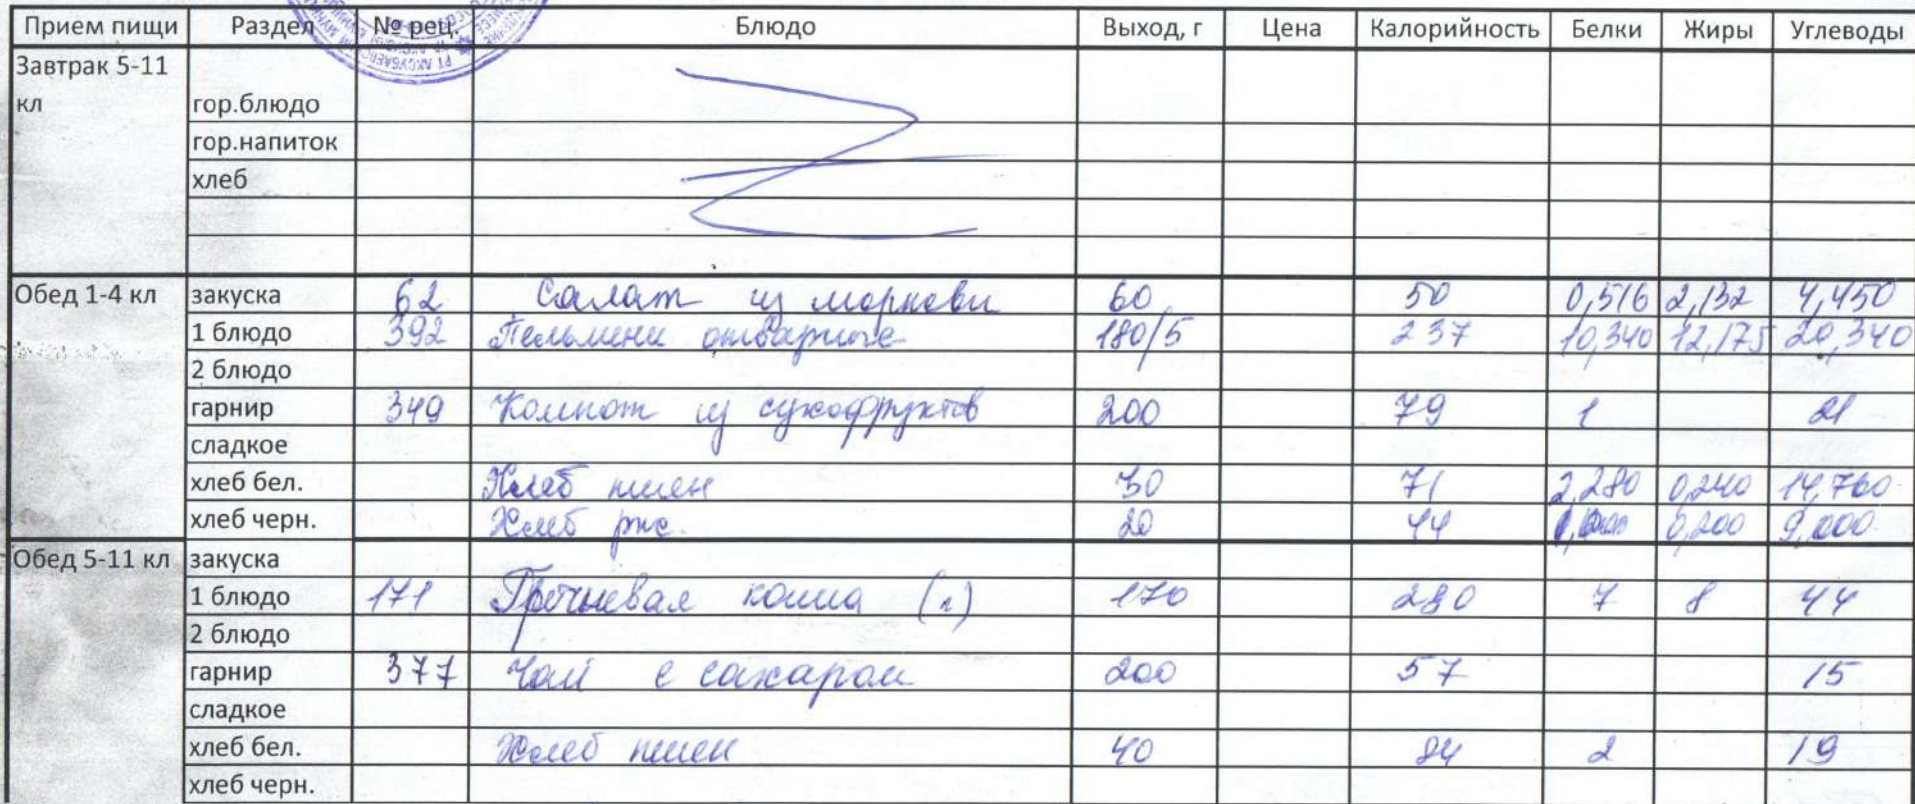 Прием пищи Раздел № рец. Блюдо Выход, г Цена Калорийность Белки Жиры Углеводы
Завтрак 5-11
кл гор.блюдо
гор.напиток
хлеб
Обед 1-4 кл закуска 62 Салат из моркови 60 50 0,516 2,132 4,450
1 блюдо 392 Пельмени отварные 180/5 237 10,340 12,175 20,340
2 блюдо
гарнир 349 Компот из сухофруктов 200 79 1 21
сладкое
хлеб бел. Хлеб пшен 30 71 2,280 0,240 14,760
хлеб черн. Хлеб рж. 20 44 0,200 9,000
Обед 5-11 кл закуска
1 блюдо 171 Гречневая каша (г) 170 280 7 8 44
2 блюдо
гарнир 377 Чай с сахаром 200 57 15
сладкое
хлеб бел. Хлеб пшен 40 94 2 19
хлеб черн.